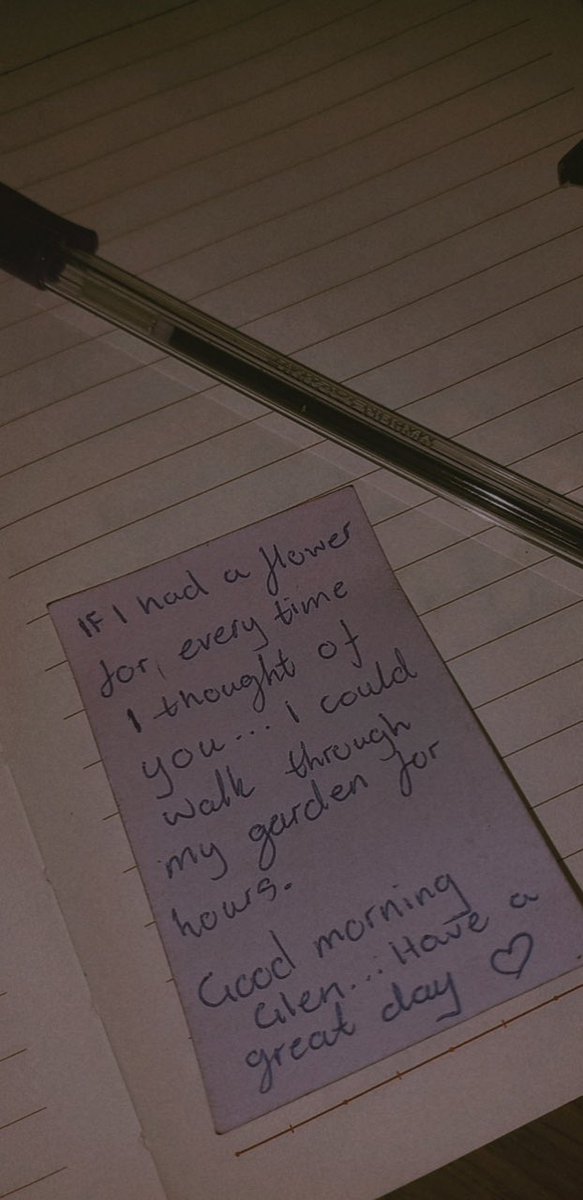 IF I had a flower
for, every time
I thought of
you... i could
walk through
my garden for
hours.
Good morning
Glen... Have a
great day ♡